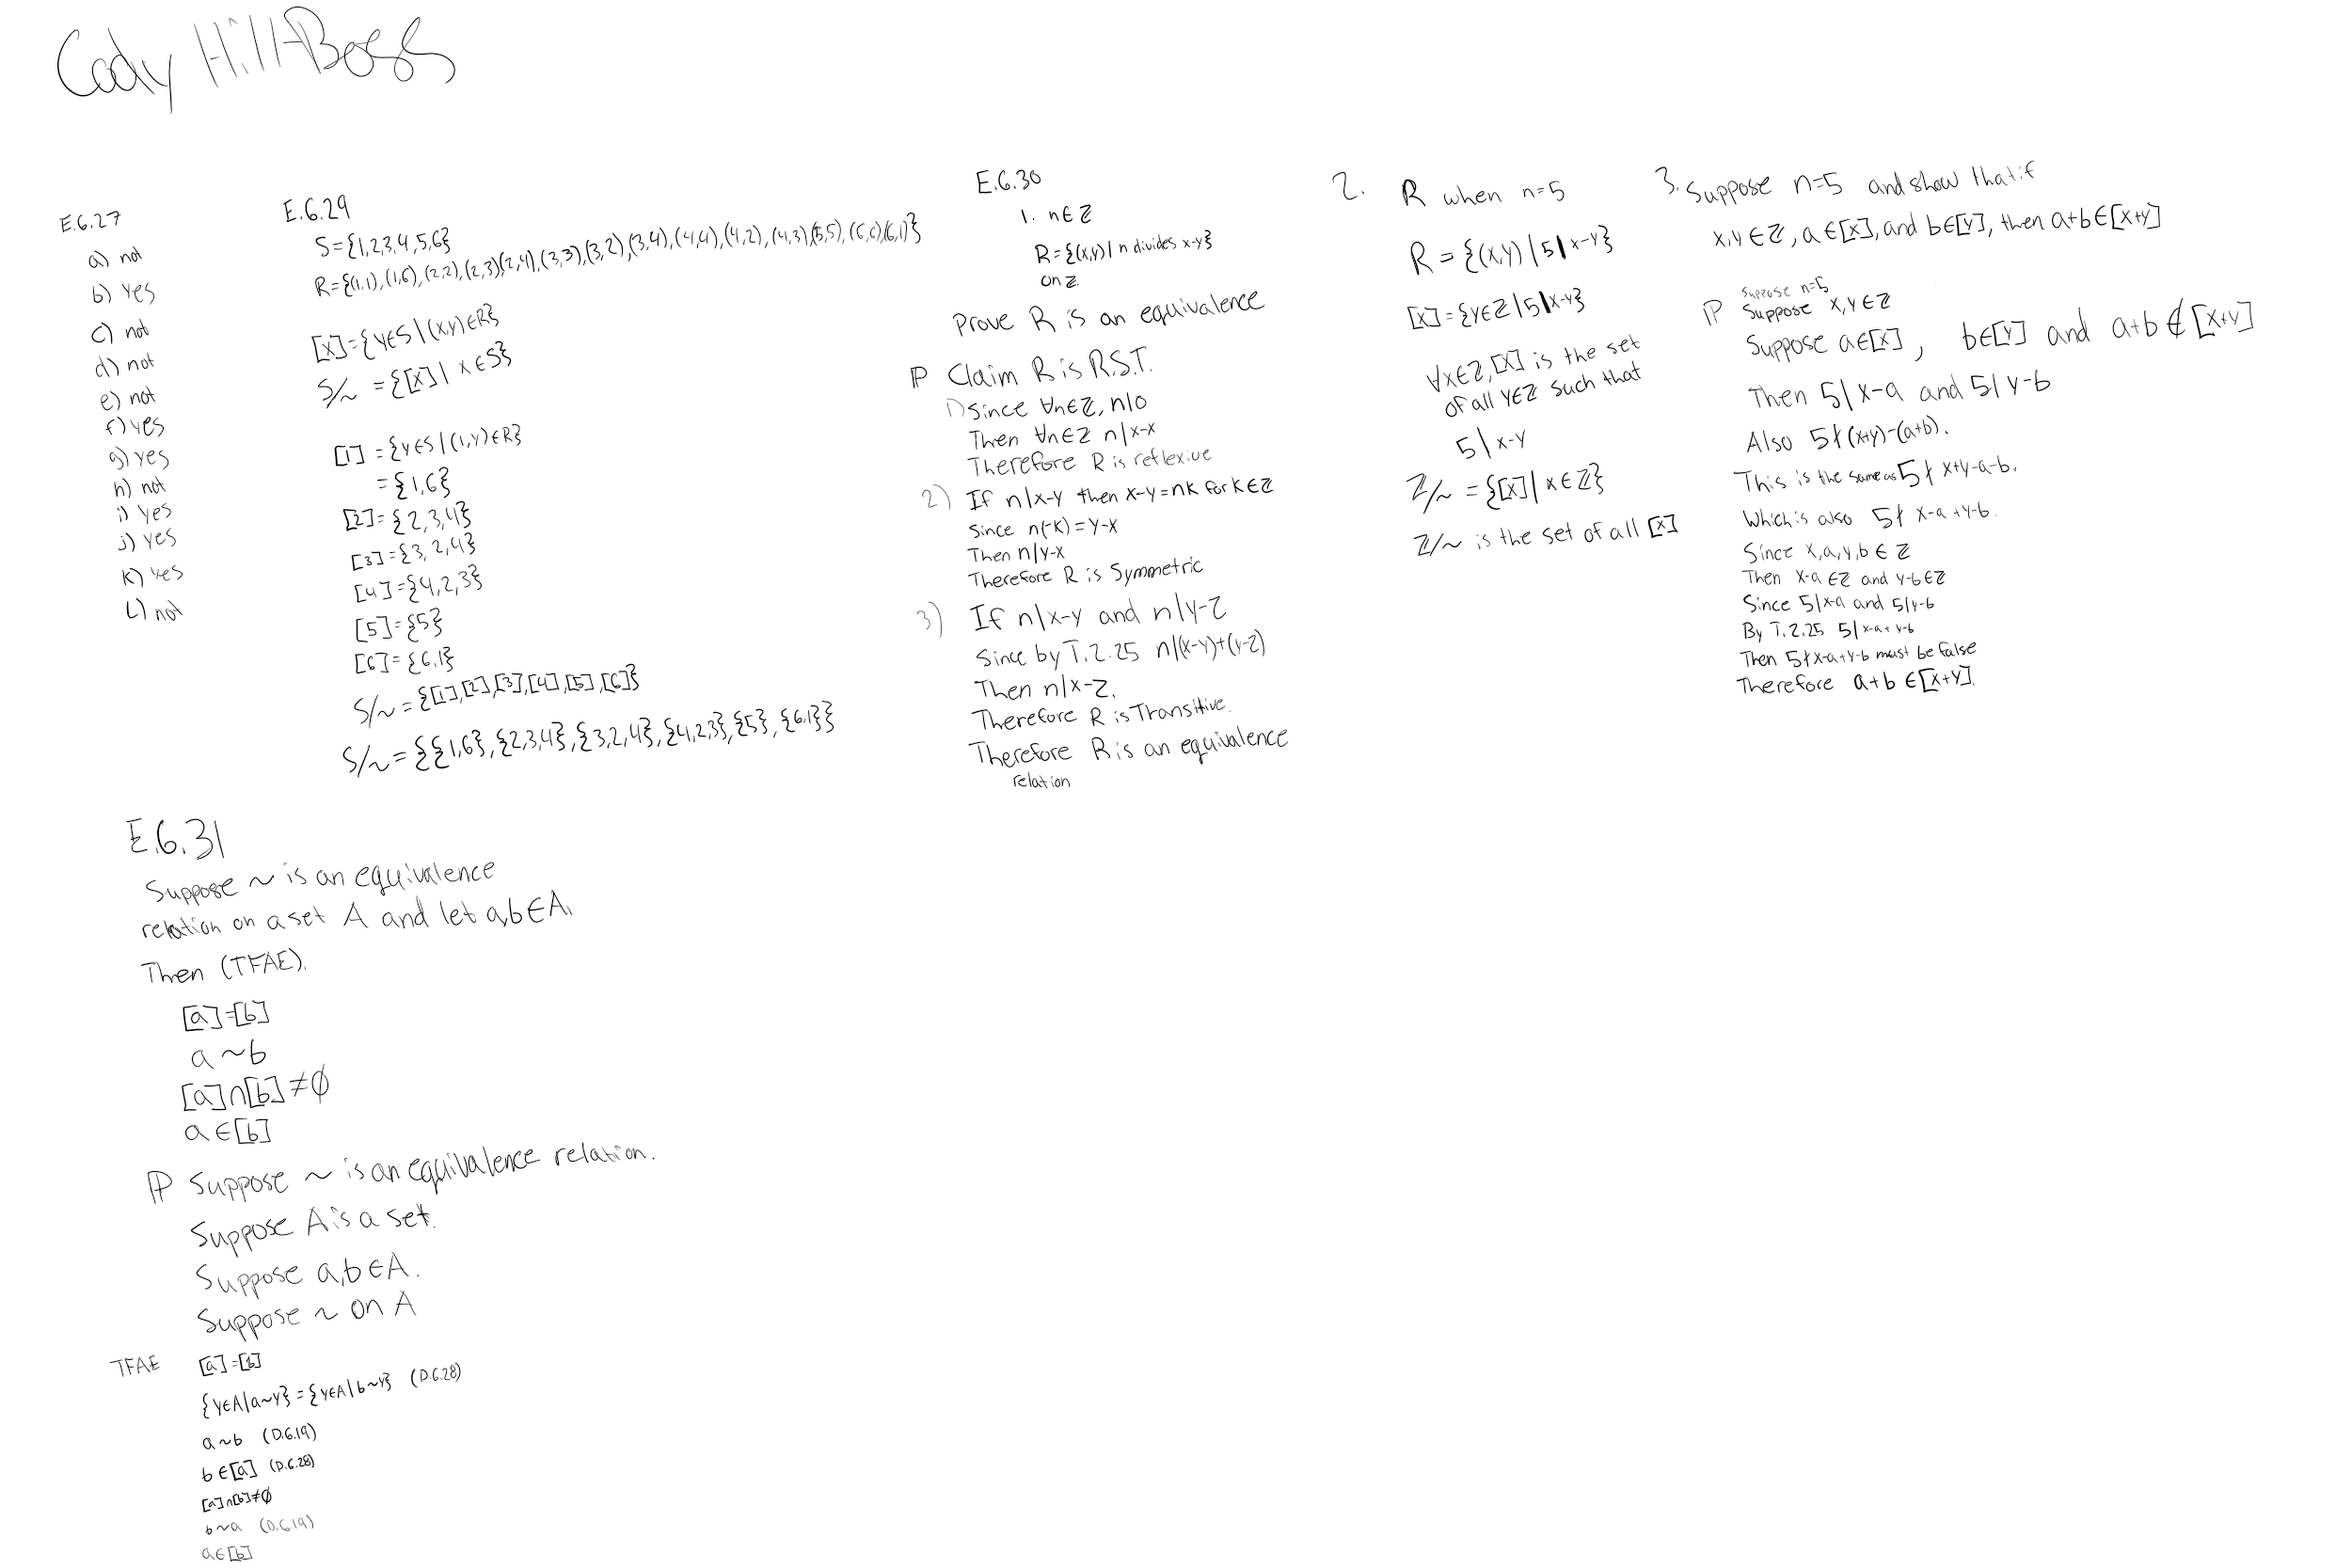 Cody Hill-Boss
E.6.27
a) not
b) yes
c) not
d) not
e) not
f) yes
g) yes
h) not
i) yes
j) yes
k) yes
L) not
E.6.29
S={1,2,3,4,5,6}
R={(1,1),(1,6),(2,2),(2,3)(2,4),(3,3),(3,2),(3,4),(4,4),(4,2),(4,3)(5,5),(6,6)(6,1)}
[x]={y∈S|(x,y)∈R}
S/~ ={[x]| x∈S}
[1] ={y∈S|(1,y)∈R}
={1,6}
[2]={2,3,4}
[3]={3,2,4}
[4]={4,2,3}
[5]={5}
[6]={6,1}
S/~={[1],[2],[3],[4],[5],[6]}
S/~={{1,6},{2,3,4},{3,2,4},{4,2,3},{5},{6,1}}
E.6.30
1. n∈ℤ
R={(x,y)| n divides x-y}
on ℤ.
Prove R is an equivalence
P Claim R is R.S.T.
1) Since ∀n∈ℤ, n|0
Then ∀n∈ℤ n|x-x
Therefore R is reflexive
2) If n|x-y then x-y=nk for k∈ℤ
Since n(-k)=y-x
Then n|y-x
Therefore R is Symmetric
3) If n|x-y and n|y-z
Since by T.2.25 n|(x-y)+(y-z)
Then n|x-z.
Therefore R is Transitive.
Therefore R is an equivalence
relation
2. R when n=5
R={(x,y)|5|x-y}
[x]={y∈ℤ|5|x-y}
∀x∈ℤ,[x] is the set
of all y∈ℤ such that
5|x-y
ℤ/~ ={[x]|x∈ℤ}
ℤ/~ is the set of all [x]
3. Suppose n=5 and show that if
x,y∈ℤ, a∈[x], and b∈[y], then a+b∈[x+y]
Suppose n=5
P Suppose x,y∈ℤ
Suppose a∈[x], b∈[y] and a+b∉[x+y]
Then 5|x-a and 5|y-b
Also 5∤(x+y)-(a+b).
This is the same as 5∤x+y-a-b.
Which is also 5∤ x-a+y-b.
Since x,a,y,b∈ℤ
Then x-a∈ℤ and y-b∈ℤ
Since 5|x-a and 5|y-b
By T.2.25 5|x-a+y-b
Then 5∤x-a+y-b must be false
Therefore a+b∈[x+y].
E.6.31
Suppose ~ is an equivalence
relation on a set A and let a,b∈A.
Then (TFAE).
[a]=[b]
a~b
[a]∩[b]≠∅
a∈[b]
P Suppose ~ is an equivalence relation.
Suppose A is a set.
Suppose a,b∈A.
Suppose ~ on A
TFAE [a]=[b]
{y∈A|a~y}={y∈A|b~y} (D.6.28)
a~b (D.6.19)
b∈[a] (D.6.28)
[a]∩[b]≠∅
b~a (D.6.19)
a∈[b]